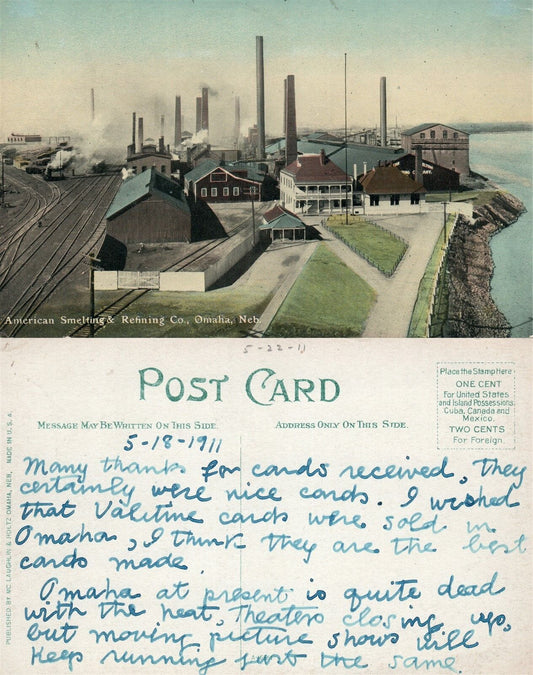 American Smelting & Refining Co., Omaha, Neb.
5-22-11
POST CARD
MESSAGE MAY BE WRITTEN ON THIS SIDE.
ADDRESS ONLY ON THIS SIDE.
Place the Stamp Here
ONE CENT
For United States
and Island Possessions
Cuba, Canada and
Mexico.
TWO CENTS
For Foreign.
PUBLISHED BY MC LAUGHLIN & HOLTZ OMAHA, NEB. MADE IN U.S.A.
5-18-1911
Many thanks for cards received, They
certainly were nice cards. I wished
that Valitine cards were sold in
Omaha, I think they are the best
cards made.
Omaha at present is quite dead
with the heat, Theaters closing up,
but moving picture shows will
keep running just the same.